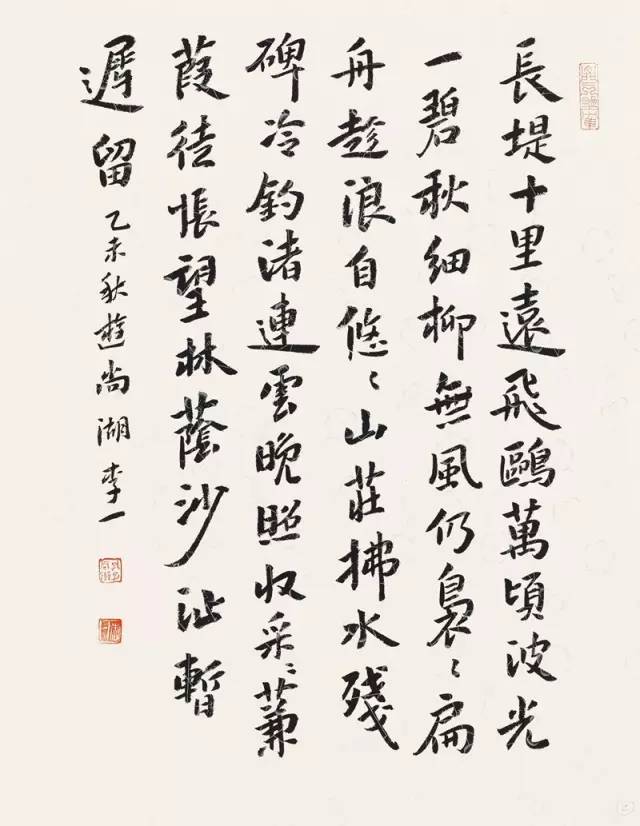 長堤十里遠飛鷗萬頃波光
一碧秋細柳無風仍裊〻扁
舟趁浪自悠〻山莊拂水殘
碑冷釣渚連雲晚照收采〻蒹
葭徒悵望林蔭沙沚暫
遲留
乙未秋遊尚湖李一